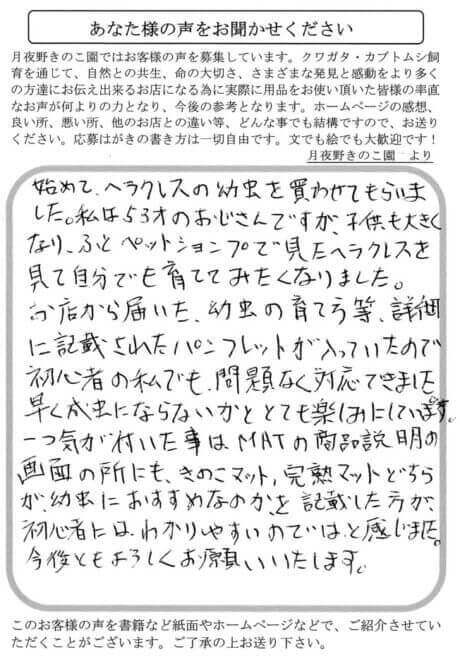 あなた様の声をお聞かせください
月夜野きのこ園ではお客様の声を募集しています。クワガタ・カブトムシ飼
育を通じて、自然との共生、命の大切さ、さまざまな発見と感動をより多く
の方達にお伝え出来るお店になる為に実際に用品をお使い頂いた皆様の率直
なお声が何よりの力となり、今後の参考となります。ホームページの感想、
良い所、悪い所、他のお店との違い等、どんな事でも結構ですので、お送り
ください。応募はがきの書き方は一切自由です。文でも絵でも大歓迎です！
月夜野きのこ園　より
始めて、ヘラクレスの幼虫を買わせてもらいま
した。私は53才のおじさんですが、子供も大きく
なり、ふとペットショップで見たヘラクレスを
見て自分でも育ててみたくなりました。
お店から届いた、幼虫の育て方等、詳細
に記載されたパンフレットが入っていたので
初心者の私でも、問題なく対応できました。
早く成虫にならないかととても楽しみにしています。
一つ気が付いた事はMATの商品説明の
画面の所にも、きのこマット,完熟マットどちら
が、幼虫におすすめなのか、を記載した方が、
初心者には、わかりやすいのでは、と感じました。
今後ともよろしくお願いいたします。
このお客様の声を書籍など紙面やホームページなどで、ご紹介させてい
ただくことがございます。ご了承の上お送り下さい。